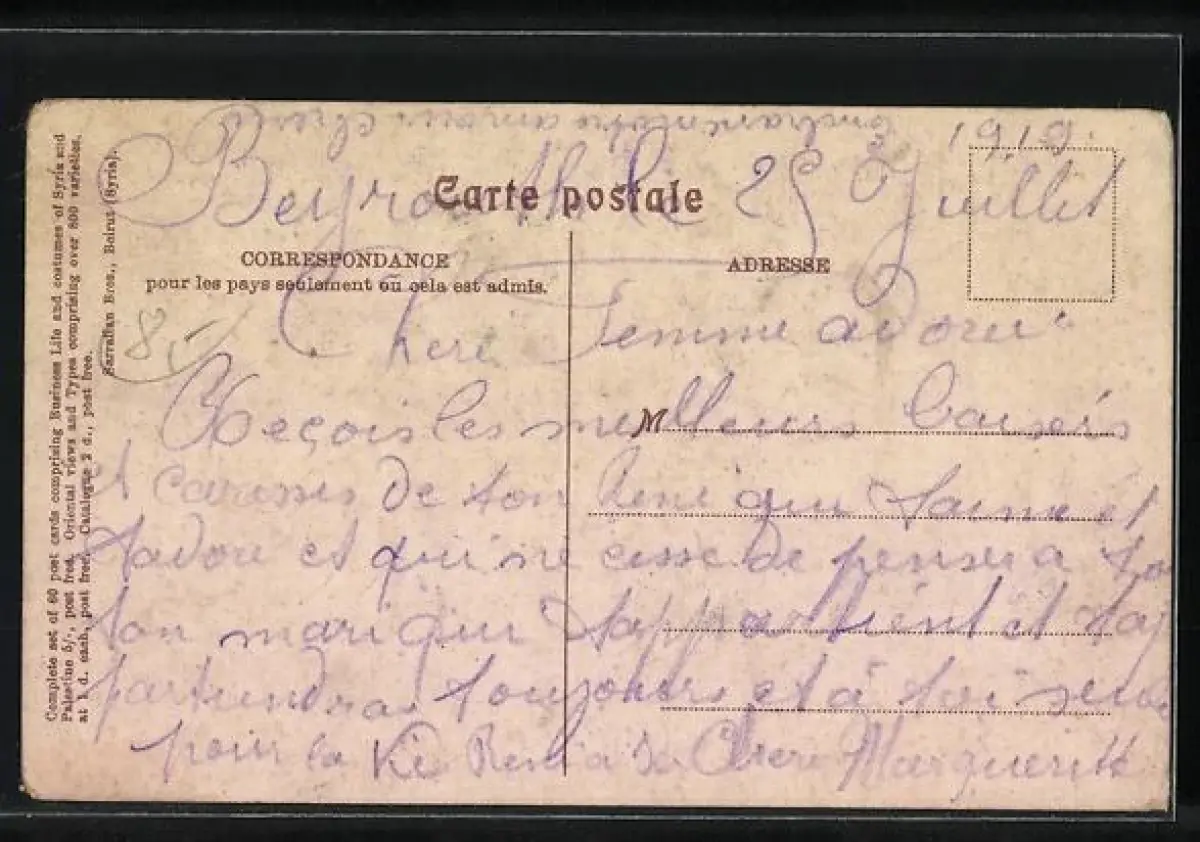 1919.
Beyrouth le 25 Juillet
Carte postale
CORRESPONDANCE
pour les pays seulement où cela est admis.
ADRESSE
85
Cheré Femme adoreé
M
Reçois les meilleurs baisers
et caresses de ton René qui t'aime et
t'adore et qui ne cesse de penser a toi
ton mari qui t'appartient et t'ap
partiendras toujours et à toi seule
pour la vie René a sa Chere Marguerite
Complete set of 60 post cards comprising Business Life and costumes of Syria and
Palestine 5/-, post free. Oriental views and Types comprising over 800 varieties,
at 1 d. each, post free. Catalogue 2 d., post free.
Sarrafian Bros., Beirut (Syria).